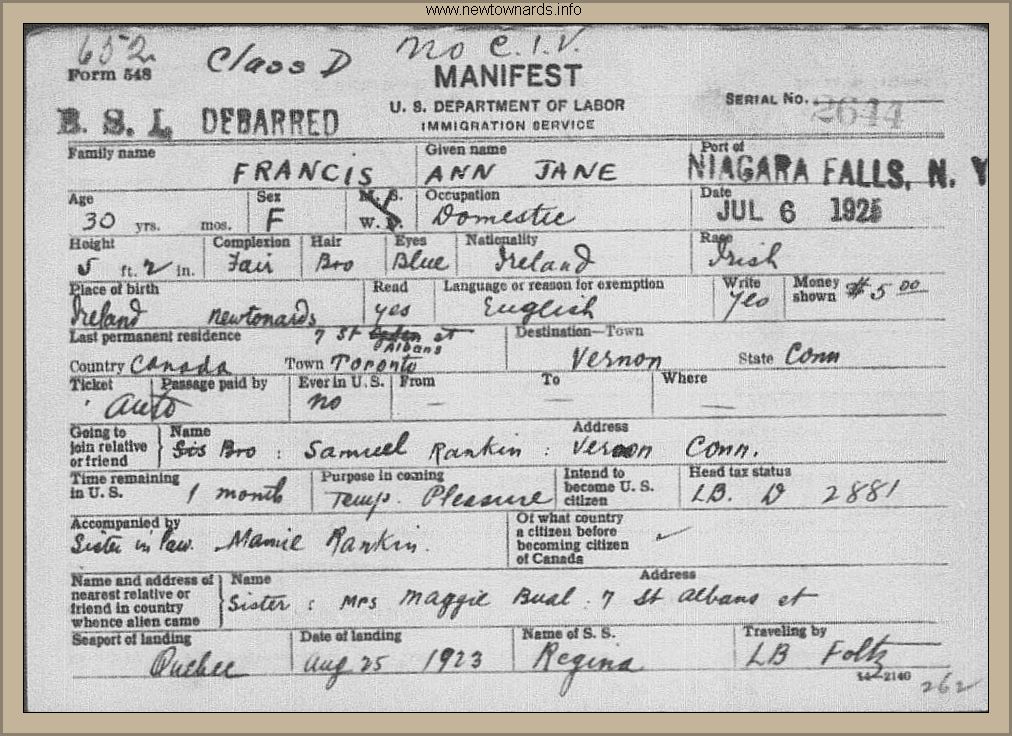 www.newtownards.info
652 Class D No C.I.V.
Form 548
MANIFEST
U. S. DEPARTMENT OF LABOR
IMMIGRATION SERVICE
SERIAL NO. 2644
B. S. I. DEBARRED
Family name FRANCIS Given name ANN JANE Port of NIAGARA FALLS, N. Y
Age 30 yrs. mos. Sex F M. S. W. D. Occupation Domestic Date JUL 6 1925
Height 5 ft. 2 in. Complexion Fair Hair Bro Eyes Blue Nationality Ireland Race Irish
Place of birth Ireland Newtonards Read yes Language or reason for exemption English Write yes Money shown $5 00
Last permanent residence 7 St Albans st Destination—Town Vernon State Conn
Country Canada Town Toronto
Ticket Passage paid by Auto Ever in U.S. no From — To — Where —
Going to join relative or friend Name Sis Bro : Samuel Rankin : Address Vernon Conn.
Time remaining in U. S. 1 month Purpose in coming Temp. Pleasure Intend to become U. S. citizen Head tax status LB. D 2881
Accompanied by Sister in law. Mamie Rankin. Of what country a citizen before becoming citizen of Canada
Name and address of nearest relative or friend in country whence alien came Name Sister : Mrs Maggie Bual : Address 7 St Albans st
Seaport of landing Quebec Date of landing Aug 25 1923 Name of S. S. Regina Traveling by LB Foltz
14-2140
262